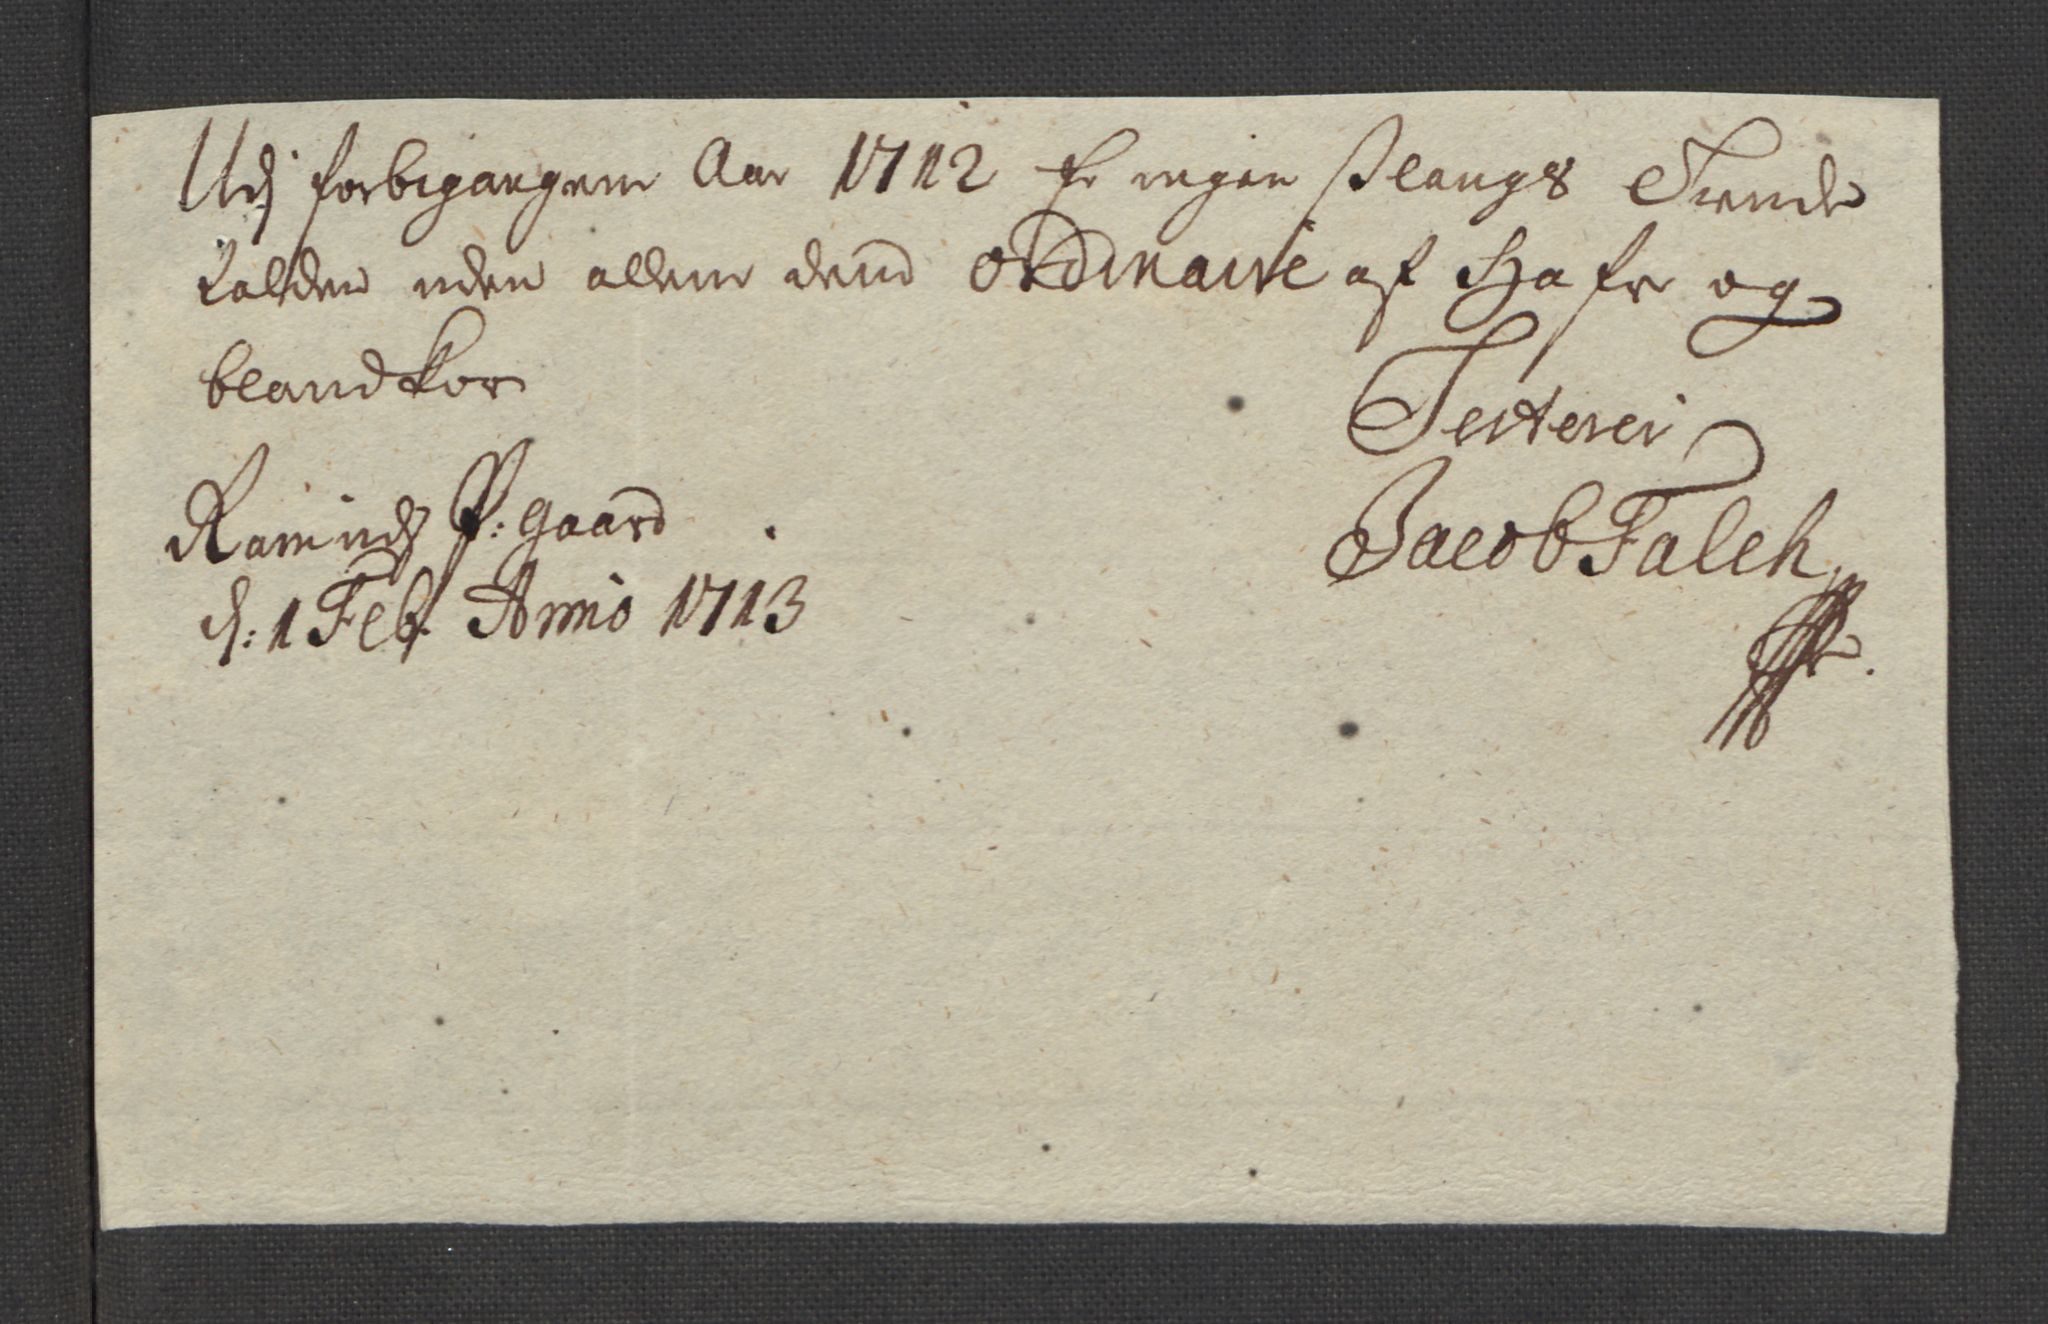 Udj forbigangene Aar 1712 Er ingen slaugs Tiende
falden uden allene dend Ordinaire af Hafre og
blandkor
Testerer
Jacob Falch
Ramnds P: gaard
d: 1 Feb. Anno 1713